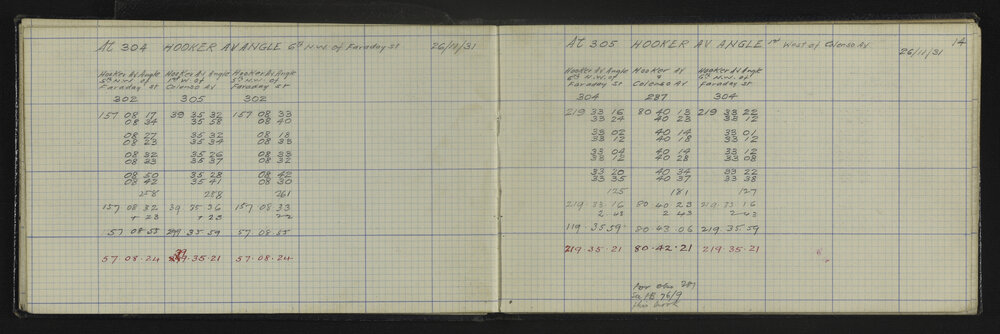 At 304 HOOKER AV ANGLE 6th N.W. of Faraday St 26/11/31
Hooker Av Angle Hooker Av Angle Hooker Av Angle
5th N.W. of 1st W. of 5th N.W. of
Faraday St Colenso Av Faraday St
302 305 302
157 08 17 39 35 32 157 08 33
08 34 35 58 08 40
08 27 35 32 08 18
08 23 35 34 08 33
08 32 35 26 08 33
08 33 35 37 08 32
08 50 35 28 08 42
08 42 35 41 08 30
258 288 261
157 08 32 39 35 36 157 08 33
+ 23 + 23 22
57 08 55 299 35 59 57 08 55
57 · 08 · 24 35 · 21 57 · 08 · 24
At 305 HOOKER AV ANGLE 1st West of Colenso Av 26/11/31 14
Hooker Av Angle Hooker Av Hooker Av Angle
6th N.W. of & 6th N.W. of
Faraday St Colenso Av Faraday St
304 287 304
219 33 16 80 40 13 219 33 22
33 24 40 23 33 12
33 02 40 14 33 01
33 12 40 18 33 12
33 04 40 14 33 12
33 12 40 28 33 08
33 20 40 34 33 22
33 35 40 37 33 38
125 181 127
219 33 16 80 40 23 219 33 16
2 43 2 43 2 43
119 · 35 59 80 43 06 219 35 59
219 · 35 · 21 80 · 42 · 21 219 · 35 · 21
For obs 287
See FB 76/9
this work